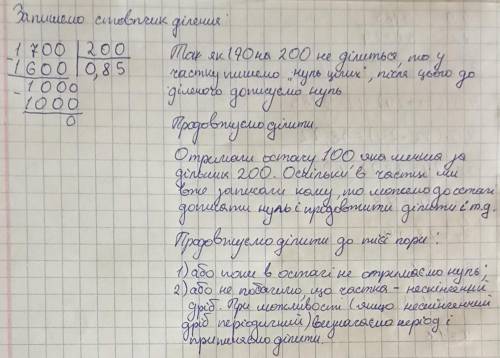 Запишемо стовпчик ділення:
1700 | 200
- 1600 | 0,85
- 1000
1000
0
Так як 170 на 200 не ділиться, то у
частку пишемо „нуль цілих", після цього до
діленого дописуємо нуль
Продовжуємо ділити.
Отримали остачу 100 яка менша за
дільник 200. Оскільки в частці ми
вже записали кому, то можемо до остачі
дописати нуль і продовжити ділити і т.д.
Продовжуємо ділити до тієї пори:
1) або поки в остачі не отримаємо нуль;
2) або не побачимо, що частка - нескінченний
дріб. При можливості (якщо нескінченний
дріб періодичний) визначаємо період і
припиняємо ділити.